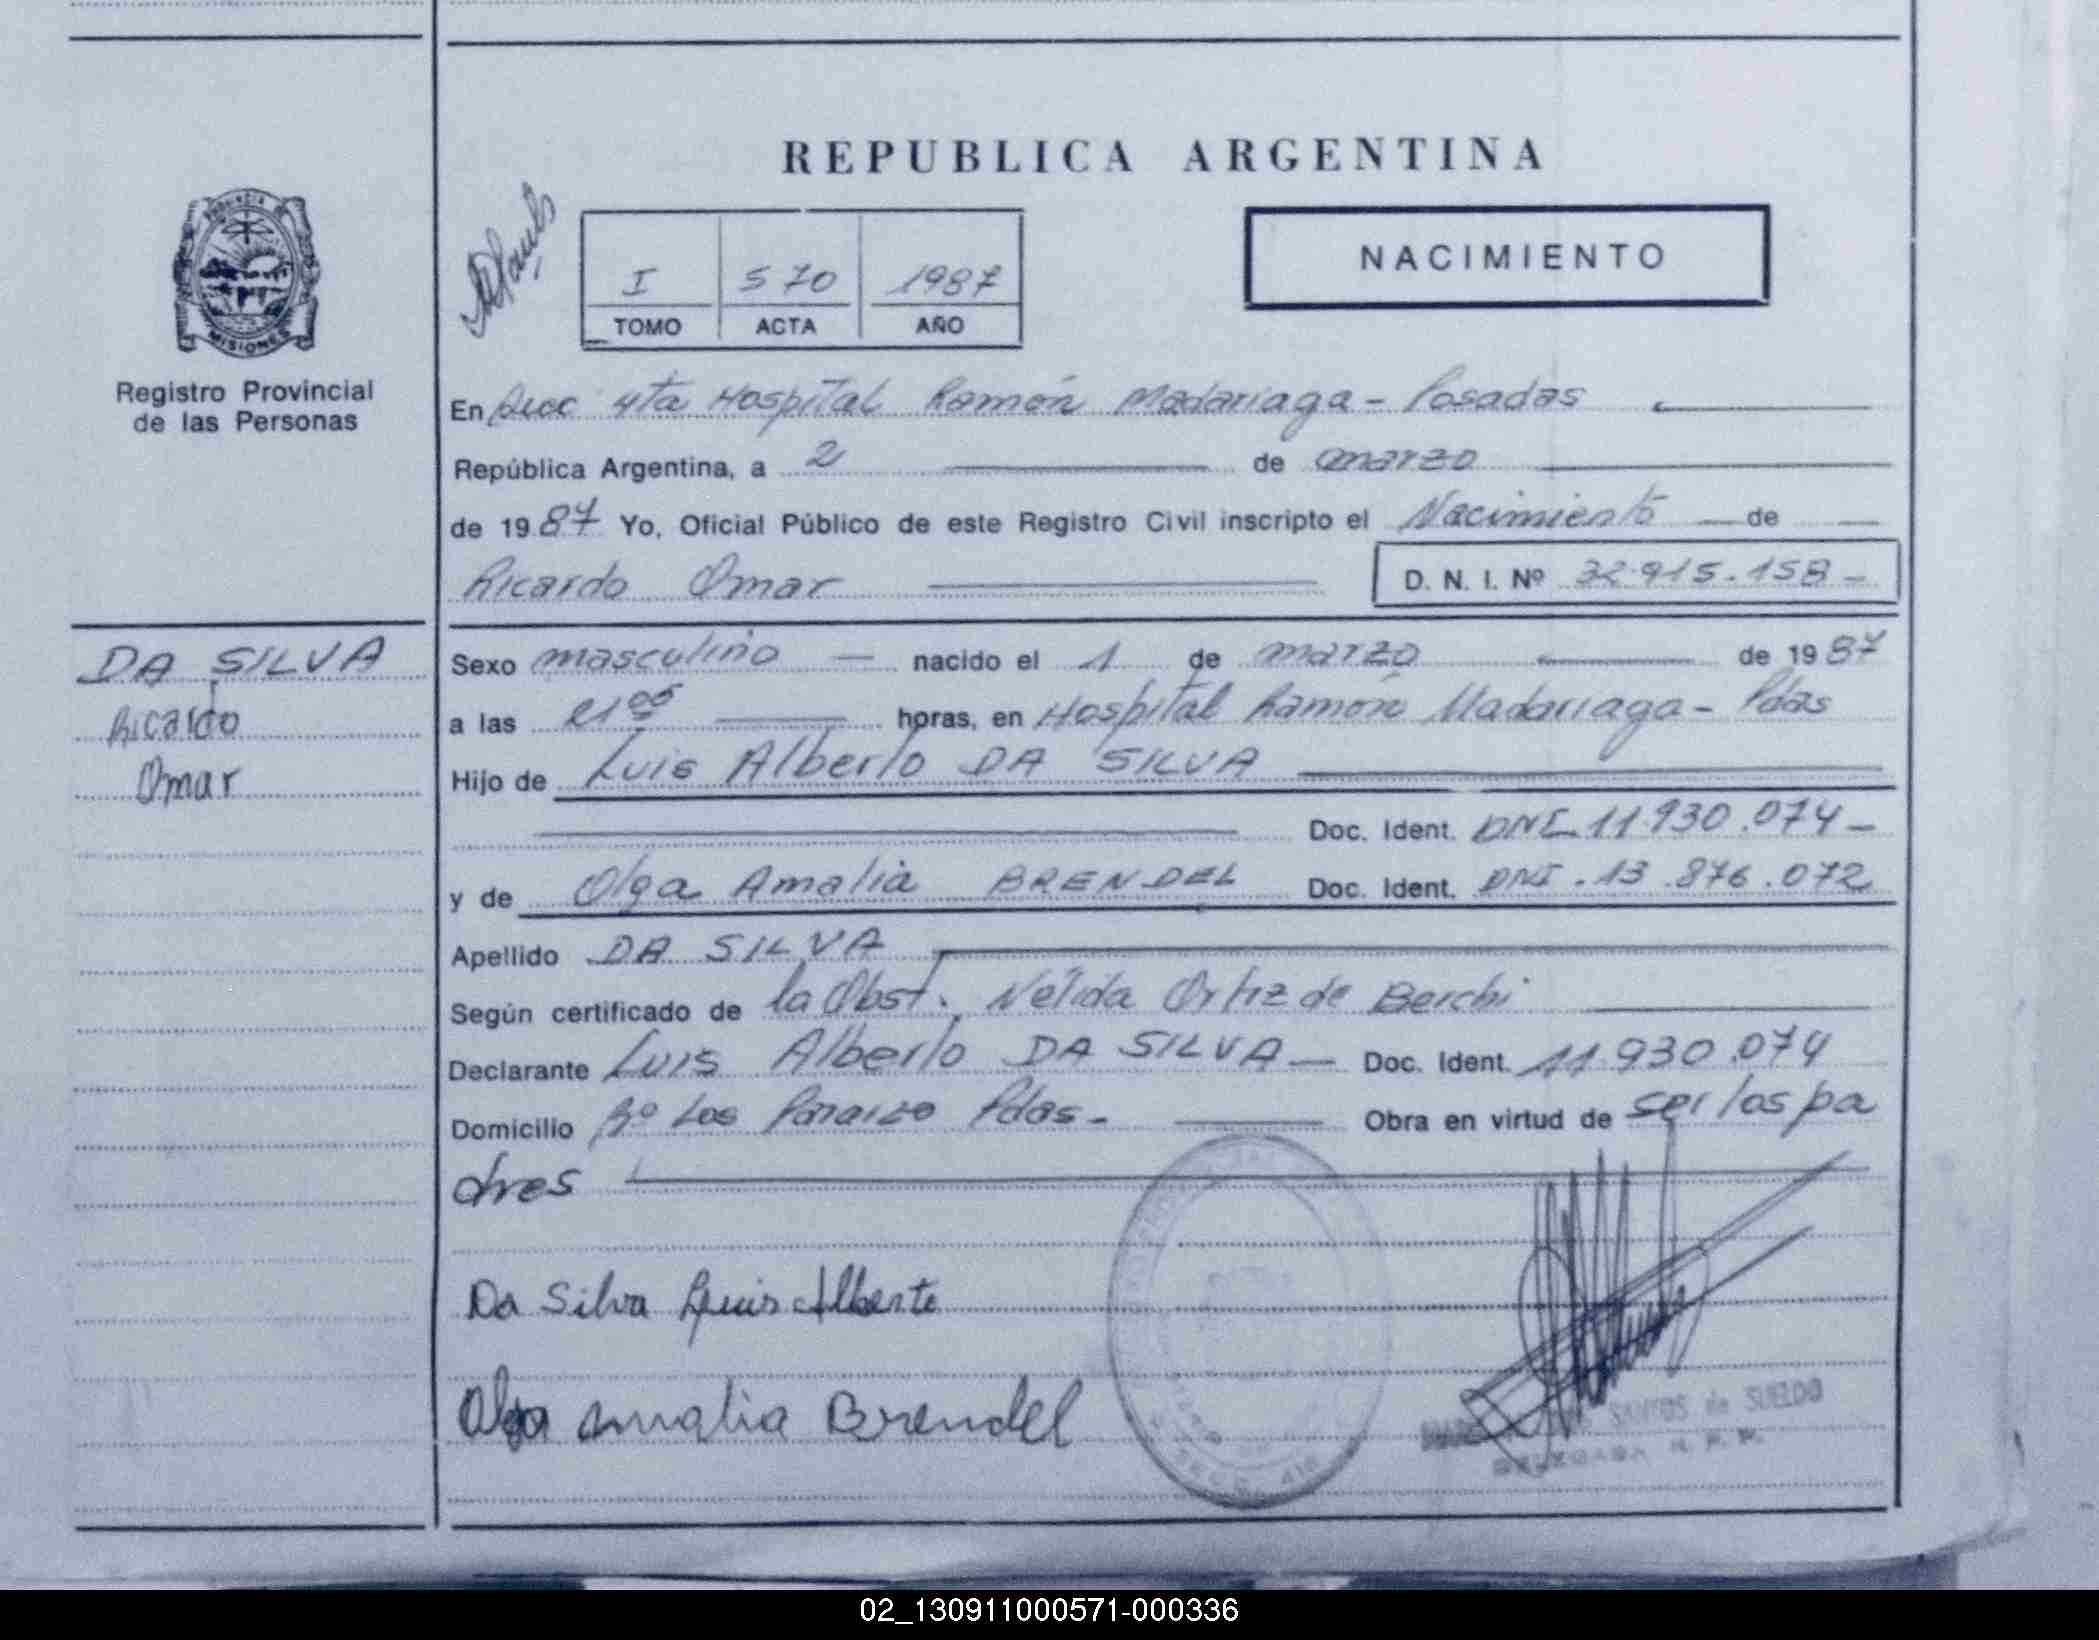 REPUBLICA ARGENTINA
PROVINCIA DE
MISIONES
Registro Provincial
de las Personas
I 570 1987
TOMO ACTA AÑO
NACIMIENTO
En Secc 4ta Hospital Ramón Madariaga - Posadas
República Argentina, a 2 de marzo
de 1987 Yo, Oficial Público de este Registro Civil inscripto el Nacimiento de
Ricardo Omar D. N. I. Nº 32.915.158 -
DA SILVA
Ricardo
Omar
Sexo masculino — nacido el 1 de marzo de 1987
a las 21 05 horas, en Hospital Ramón Madariaga - Pdas
Hijo de Luis Alberto DA SILVA
Doc. Ident. DNI 11.930.074 -
y de Olga Amalia BRENDEL Doc. Ident. DNI. 13.876.072
Apellido DA SILVA
Según certificado de la Obst. Nélida Ortiz de Berchi
Declarante Luis Alberto DA SILVA — Doc. Ident. 11.930.074
Domicilio Bº Los Paraizo Pdas. Obra en virtud de ser los pa
dres
Da Silva Luis Alberto
Olga Amalia Brendel
SANTOS de SUELDO
DELEGADA R. P. P.
02_130911000571-000336